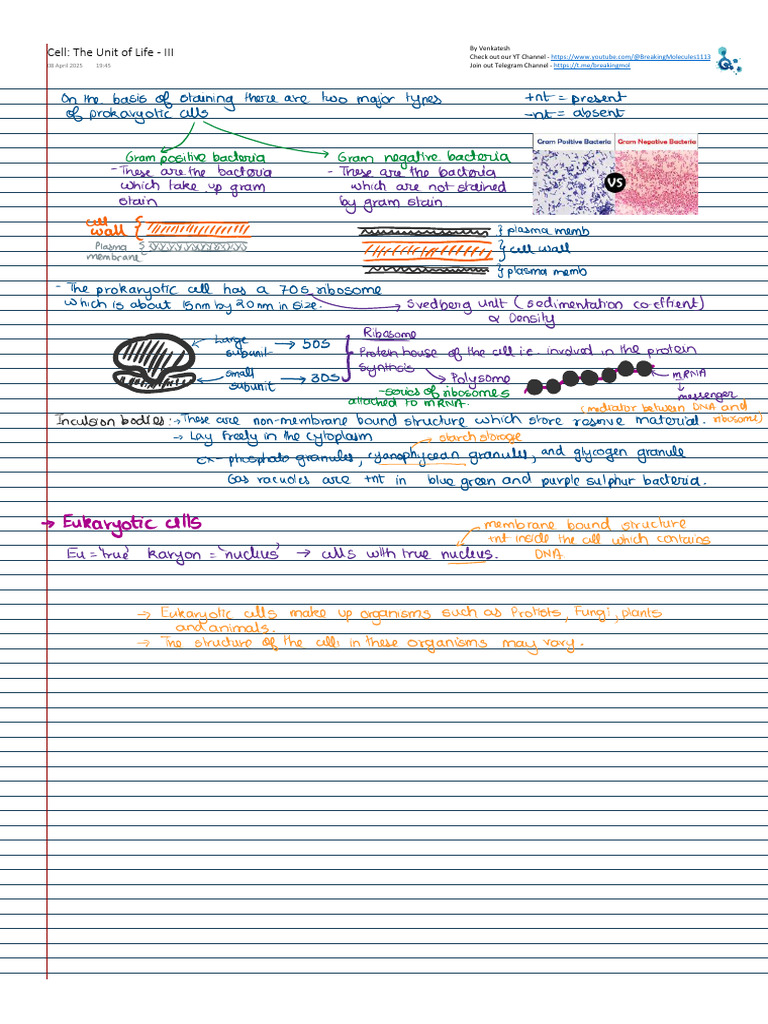 Cell: The Unit of Life - III
08 April 2025 19:45
By Venkatesh
Check out our YT Channel - https://www.youtube.com/@BreakingMolecules1113
Join out Telegram Channel - https://t.me/breakingmol
On the basis of staining there are two major types
of prokaryotic cells
+nt = present
-nt = absent
Gram positive bacteria
- These are the bacteria
which take up gram
stain
Gram negative bacteria
- These are the bacteria
which are not stained
by gram stain
Gram Positive Bacteria
VS
Gram Negative Bacteria
cell
wall
Plasma
membrane
plasma memb
cell wall
plasma memb
- The prokaryotic cell has a 70S ribosome
which is about 15nm by 20nm in size.
Svedberg unit (sedimentation co-effient)
∝ Density
Large
subunit → 50S
small
subunit → 30S
Ribosome
Protein house of the cell i.e. involved in the protein
synthsis
Polysome
- series of ribosomes
attached to mRNA.
mRNA
messenger
(mediator between DNA and
ribosome)
Inculsion bodies: → These are non-membrane bound structure which store reserve material.
→ Lay freely in the cytoplasm
starch storage
ex - phosphate granules, cyanophycean granules, and glycogen granule
Gas vacuoles are +nt in blue green and purple sulphur bacteria.
→ Eukaryotic cells
Eu = 'true' karyon = 'nucleus' → cells with true nucleus.
membrane bound structure
+nt inside the cell which contains
DNA
→ Eukaryotic cells make up organisms such as Protists, Fungi, plants
and animals.
→ The structure of the cells in these organisms may vary.